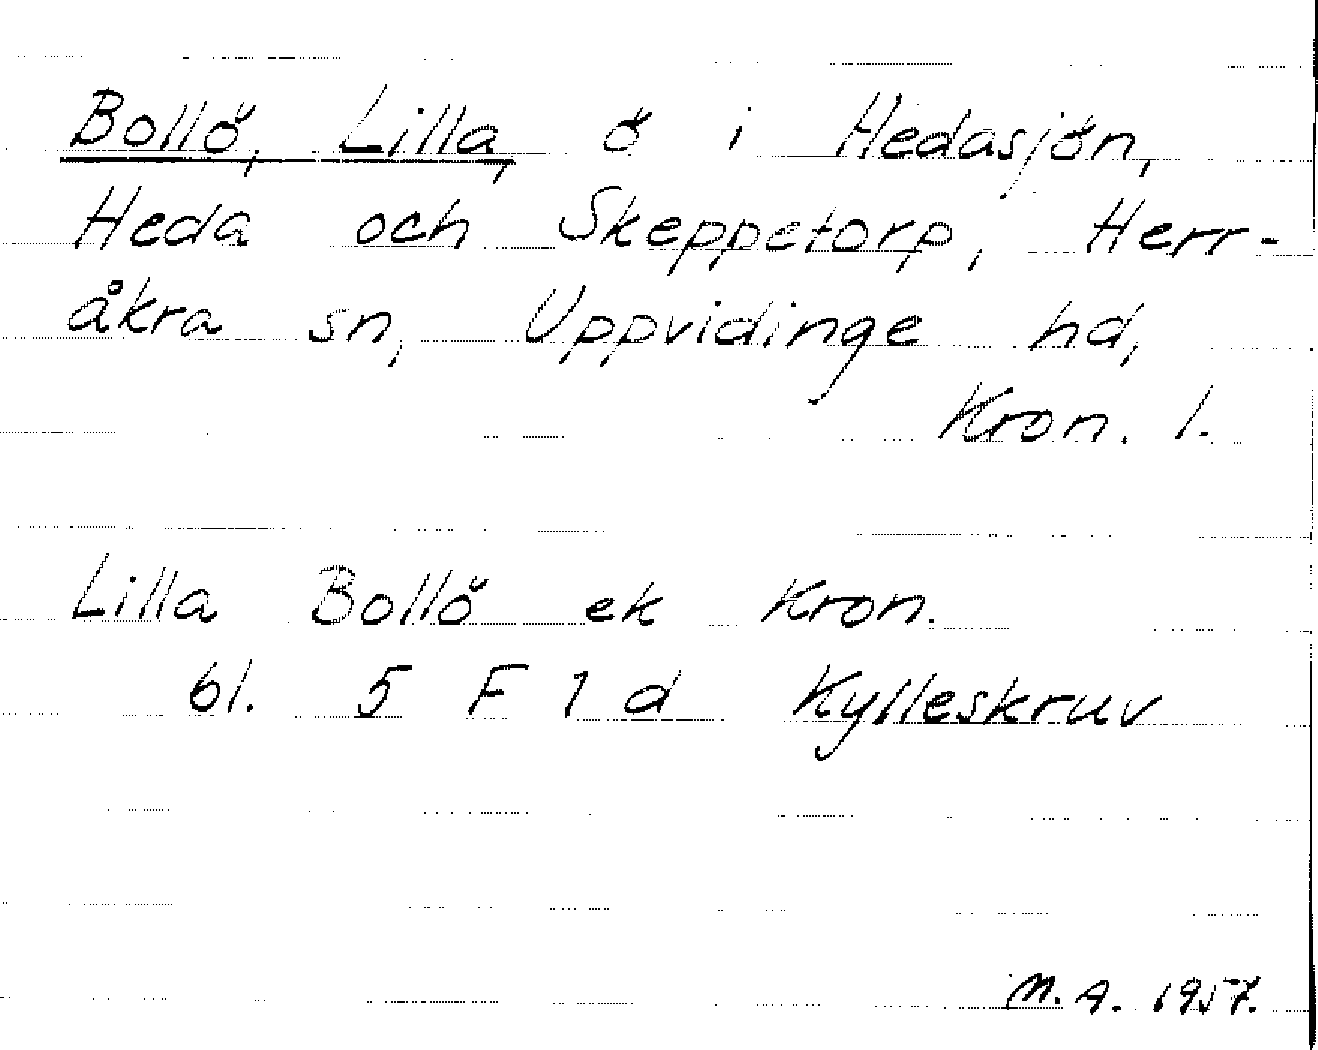 Bollö, Lilla, ö i Hedasjön,
Heda och Skeppetorp, Herr-
åkra sn, Uppvidinge hd,
Kron. l.
Lilla Bollö ek Kron.
bl. 5 F 1 d Kylleskruv
M. A. 1957.